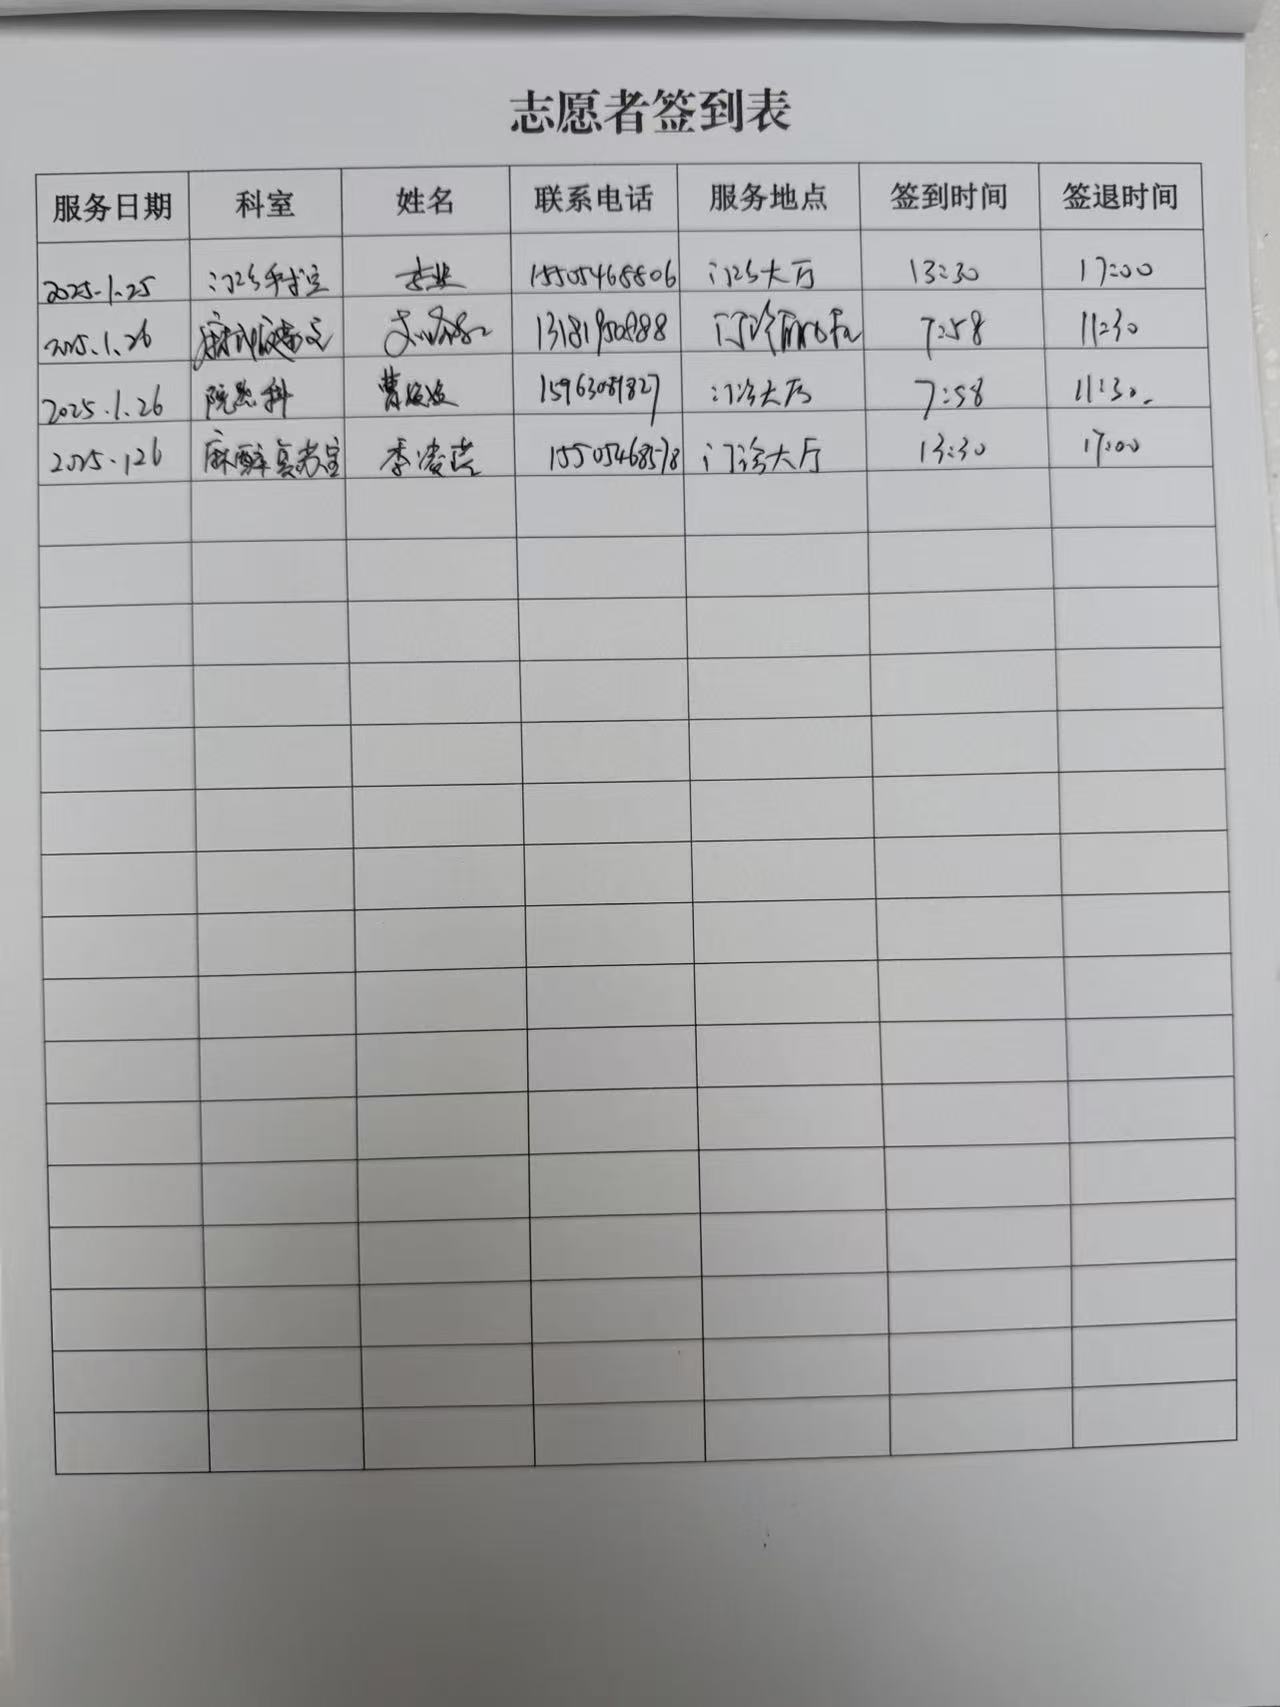 志愿者签到表
服务日期 科室 姓名 联系电话 服务地点 签到时间 签退时间
2025.1.25 门诊手术室 15505468806 门诊大厅 13:30 17:00
2025.1.26 13181950888 门诊 7:58 11:30
2025.1.26 院感科 曹 15963081827 门诊大厅 7:58 11:30
2025.126 麻醉复苏室 李凌 15505468578 门诊大厅 13:30 17:00